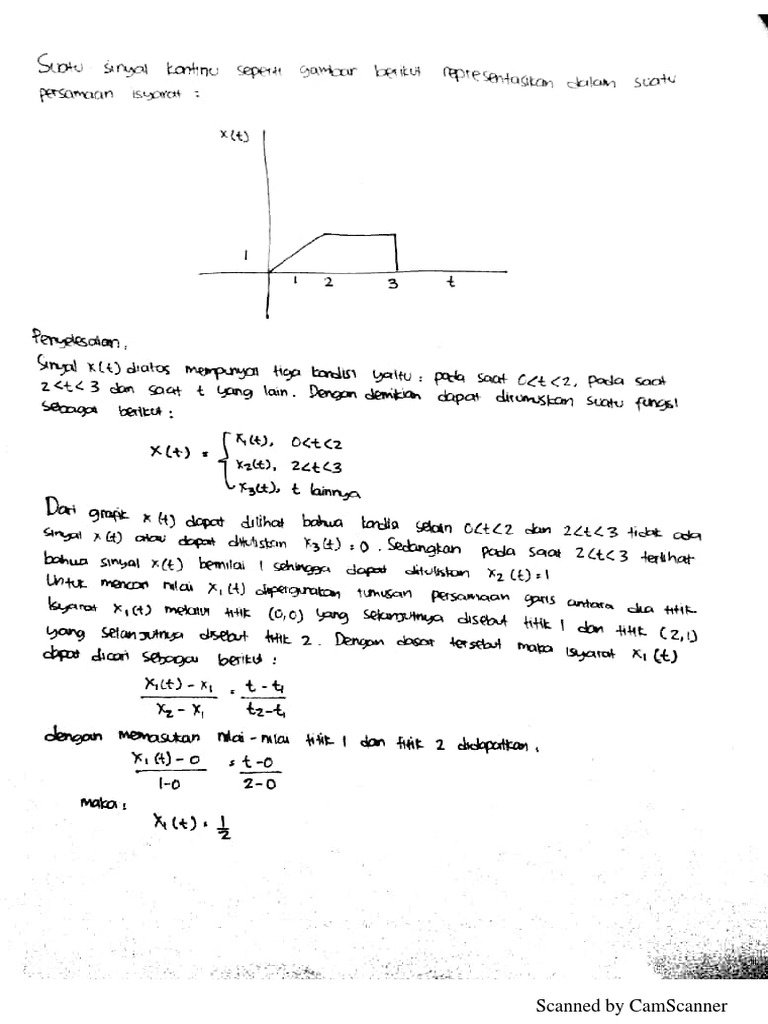 Suatu sinyal kontinu seperti gambar berikut representasikan dalam suatu
persamaan isyarat :
x(t)
1
1 2 3 t
Penyelesaian :
Sinyal x(t) diatas mempunyai tiga kondisi yaitu : pada saat 0<t<2, pada saat
2<t<3 dan saat t yang lain. Dengan demikian dapat dirumuskan suatu fungsi
sebagai berikut :
x(t) = { x₁(t), 0<t<2
x₂(t), 2<t<3
x₃(t), t lainnya
Dari grafik x(t) dapat dilihat bahwa kondisi selain 0<t<2 dan 2<t<3 tidak ada
sinyal x(t) atau dapat dituliskan x₃(t) = 0. Sedangkan pada saat 2<t<3 terlihat
bahwa sinyal x(t) bernilai 1 sehingga dapat dituliskan x₂(t) = 1
Untuk mencari nilai x₁(t) dipergunakan rumusan persamaan garis antara dua titik
Isyarat x₁(t) melalui titik (0,0) yang selanjutnya disebut titik 1 dan titik (2,1)
yang selanjutnya disebut titik 2. Dengan dasar tersebut maka isyarat x₁(t)
dapat dicari sebagai berikut :
x₁(t) - x₁ = t - t₁
x₂ - x₁ t₂ - t₁
dengan memasukan nilai-nilai titik 1 dan titik 2 didapatkan :
x₁(t) - 0 = t - 0
1-0 2-0
maka :
x₁(t) = 1/2
Scanned by CamScanner